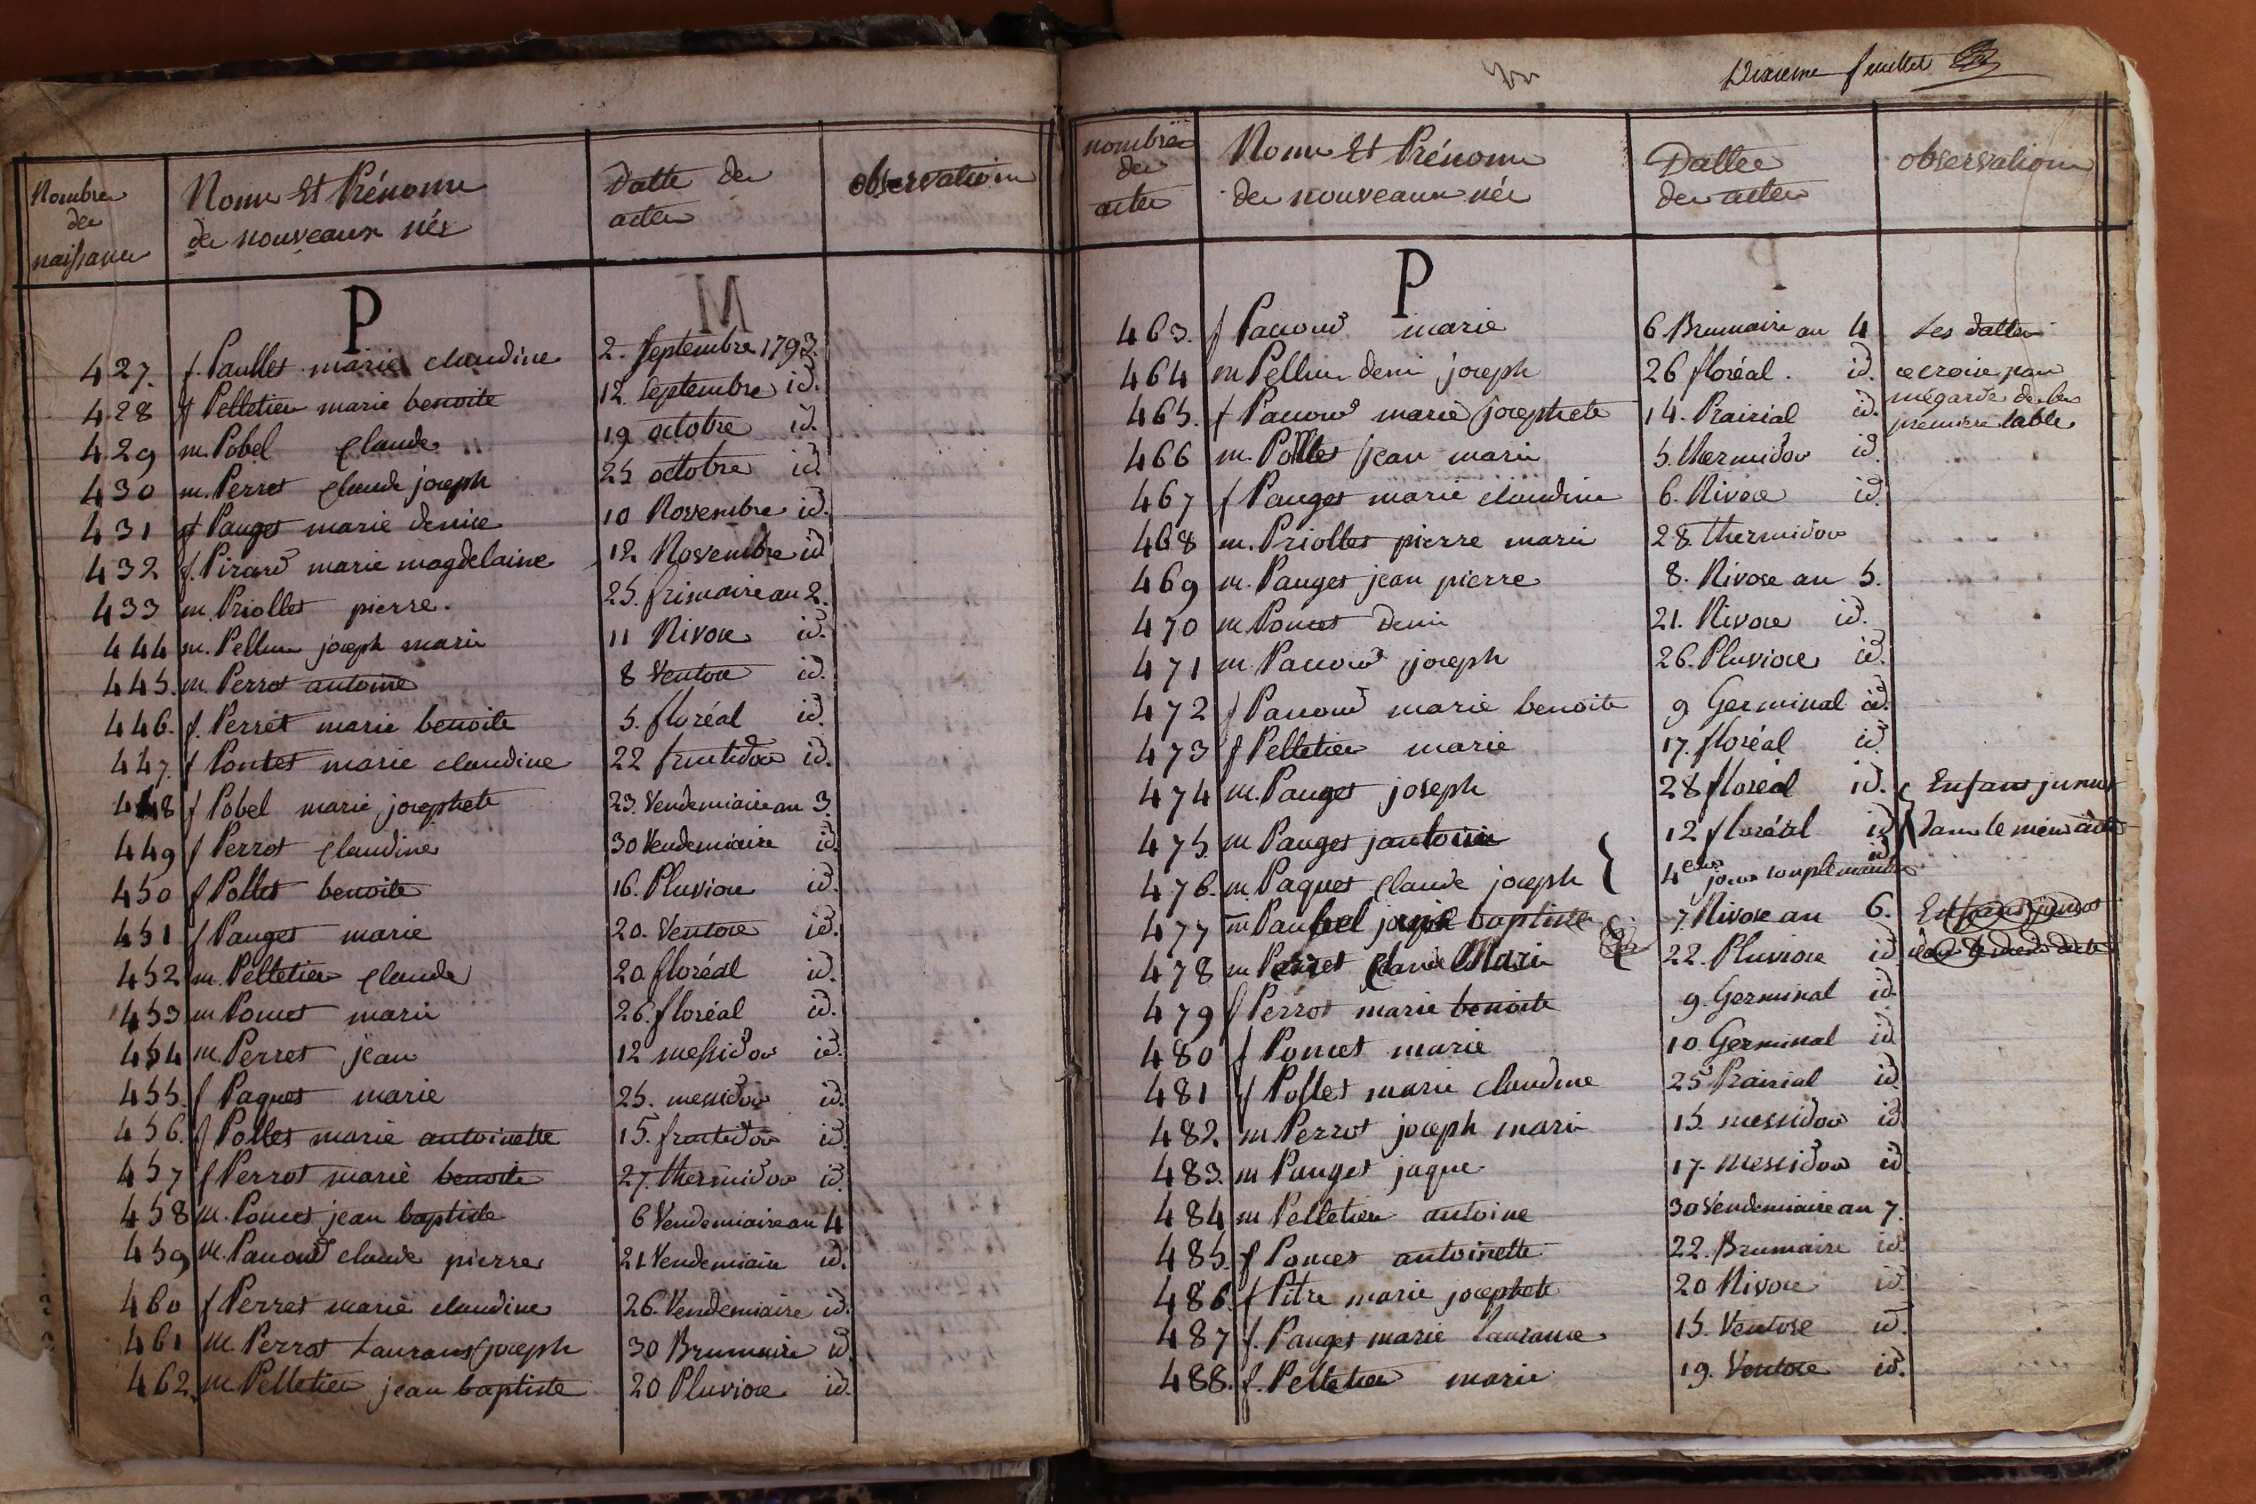 Nombre
de
naissance
Noms Et Prénoms
de nouveaux nés
Datte des
actes
observations
P
M
427. f. Paullet marie claudine 2. Septembre 1793.
428 f Pelletier marie benoite 12. Septembre id.
429 m. Pobel Claude 19 octobre id.
430 m. Perret Claude joseph 25 octobre id.
431 f Pauget marie denise 10 Novembre id.
432 f. Pirard marie magdelaine 12 Novembre id
433 m. Priollet pierre. 25. frimaire an 2.
444 m. Pellrin joseph marie 11 Nivose id.
445. m. Perrot antoine 8 Ventose id.
446. f. Perret marie benoite 5. floréal id.
447. f Pontet marie claudine 22 fructidor id.
448 f Pobel marie josephete 23. Vendemiaire an 3.
449 f Perrot Claudine 30 Vendemiaire id.
450 f Pollet benoite 16. Pluviose id.
451 f Pauget marie 20. Ventose id.
452 m. Pelletier Claude 20 floréal id.
453 m Poncet marie 26. floréal id.
454 m. Perret jean 12 messidor id.
455. f Paquet marie 25. messidor id.
456. f Pollet marie antoinette 15. fructidor id.
457 f Perrot marie benoite 27. thermidor id.
458 m. Poncet jean baptiste 6 Vendemiaire an 4
459 m. Pacoud claude pierre 21 Vendemiaire id.
460 f Perret marie claudine 26. Vendemiaire id.
461 m. Perrot Laurans joseph 30 Brumaire id.
462. m Pelletier jean baptiste 20 Pluviose id.
Dixieme feuillet
nombre
de
actes
Noms Et Prénoms
des nouveaux nés
Dattes
des actes
observations
P
463. f Pacoud marie 6 Brumaire an 4 Les dattes
464 m Pellrin denis joseph 26 floréal. id. ce croise par
465. f Pacoud marie josephete 14. Prairial id. mégarde de la
premiere table
466 m. Pollet jean marie 5. thermidor id.
467 f Pauget marie claudine 6. Nivose id.
468 m. Priollet pierre marie 28. thermidor
469 m. Pauget jean pierre 8. Nivose an 5.
470 m Poncet denis 21. Nivose id.
471 m Pacoud joseph 26. Pluviose id.
472 f Pacoud marie benoite 9 Germinal id.
473 f Pelletier marie 17. floréal id.
474 m. Pauget joseph 28 floréal id. Enfans jumeaux
475. m Pauget jantoine 12 floréal id dans le même acte
476. m. Paquet Claude joseph 4eme jour complementaire id
477 m Paubel baptiste 7. Nivose an 6.
478 m Perret Marie 22. Pluviose id
479 f Perrot marie benoite 9. Germinal id.
480 f Poncet marie 10 Germinal id
481 f Pollet marie Claudine 25 Prairial id
482. m Perrot joseph marie 15. messidor id.
483. m Pauget jaque 17. Messidor id
484 m Pelletier antoine 30 Vendemiaire an 7.
485. f Poncet antoinette 22. Brumaire id.
486. f Pitre marie josephete 20 Nivose id.
487 f. Pauget marie Laurance 15. Ventose id.
488. f. Pelletier marie 19. Ventose id.